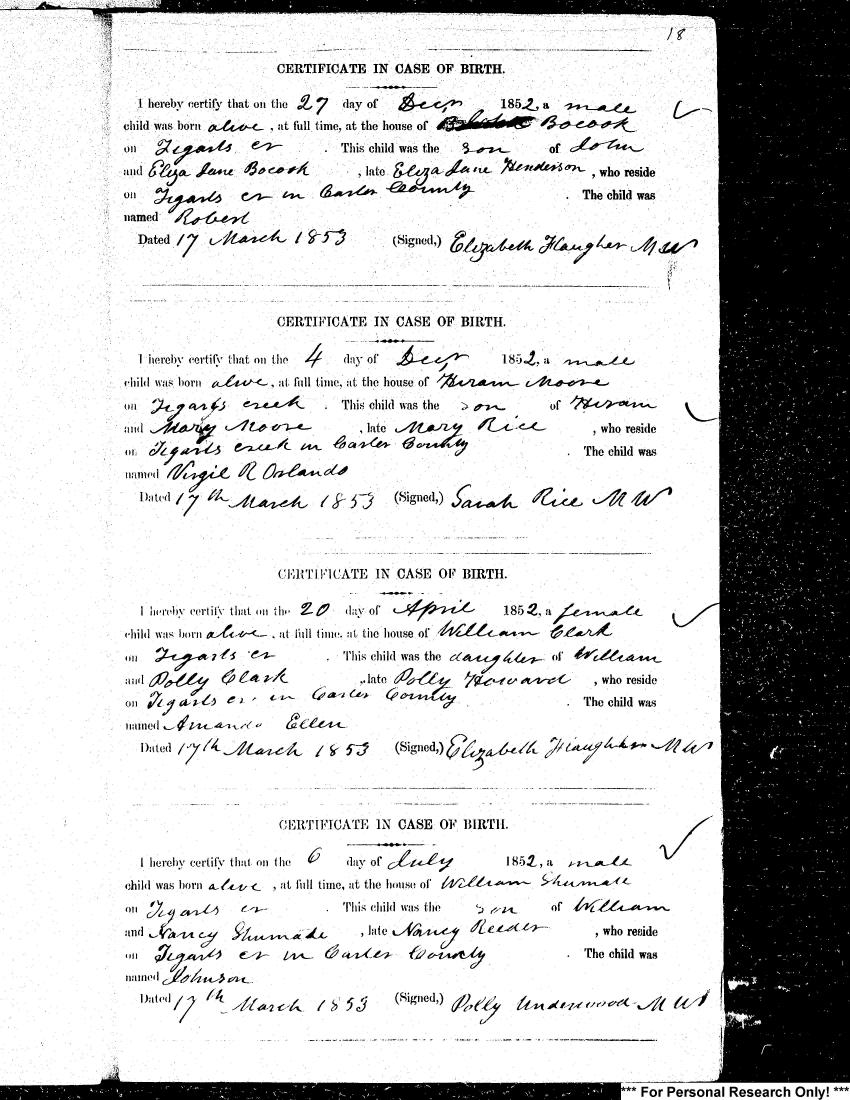 18
CERTIFICATE IN CASE OF BIRTH.
I hereby certify that on the 27 day of Decr 1852, a male
child was born alive, at full time, at the house of Bocook
on Tigarts cr. This child was the son of John
and Eliza Jane Bocook, late Eliza Jane Henderson, who reside
on Tigarts cr in Carter County. The child was
named Robert
Dated 17 March 1853 (Signed,) Elizabeth Flaugher MW
CERTIFICATE IN CASE OF BIRTH.
I hereby certify that on the 4 day of Decr 1852, a male
child was born alive, at full time, at the house of Hiram Moore
on Tigarts creek. This child was the son of Hiram
and Mary Moore, late Mary Rice, who reside
on Tigarts creek in Carter County. The child was
named Virgil R Orlando
Dated 17th March 1853 (Signed,) Sarah Rice MW
CERTIFICATE IN CASE OF BIRTH.
I hereby certify that on the 20 day of April 1852, a female
child was born alive, at full time, at the house of William Clark
on Tigarts cr. This child was the daughter of William
and Polly Clark, late Polly Howard, who reside
on Tigarts cr. in Carter County. The child was
named Amanda Ellen
Dated 17th March 1853 (Signed,) Elizabeth MW
CERTIFICATE IN CASE OF BIRTH.
I hereby certify that on the 6 day of July 1852, a male
child was born alive, at full time, at the house of William Shumate
on Tigarts cr. This child was the son of William
and Nancy Shumate, late Nancy Reeder, who reside
on Tigarts cr in Carter County. The child was
named Johnson
Dated 17th March 1853 (Signed,) Polly Underwood MW
*** For Personal Research Only! ***